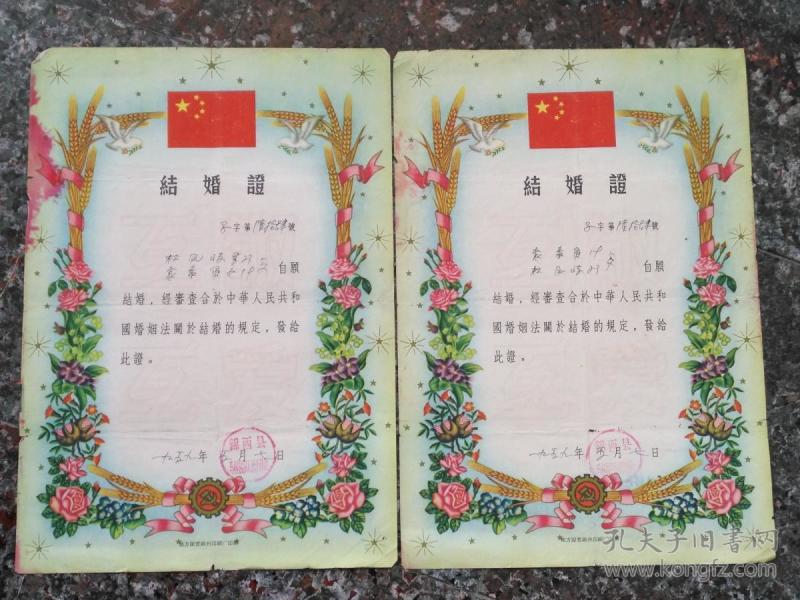 結婚證
字第陸拾肆號
自願
結婚，經審查合於中華人民共和
國婚姻法關於結婚的規定，發給
此證。
錦西县
一九五九年 五月 日
結婚證
字第陸拾肆號
自願
結婚，經審查合於中華人民共和
國婚姻法關於結婚的規定，發給
此證。
錦西县
一九五九年 五月 日
孔夫子旧書网
www.kongfz.com